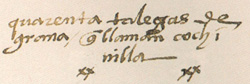 quarenta talegas de
grana, q̃ llaman cochi
nilla